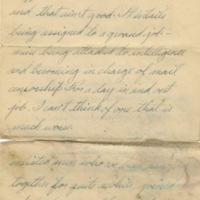 and that isn't good. It
being assigned to a guard job -
mine being attached to intelligence
and becoming in charge of mail
censorship for a day in and out
job. I can't think of one that is
much worse.
enlisted men who
together for quite awhile,